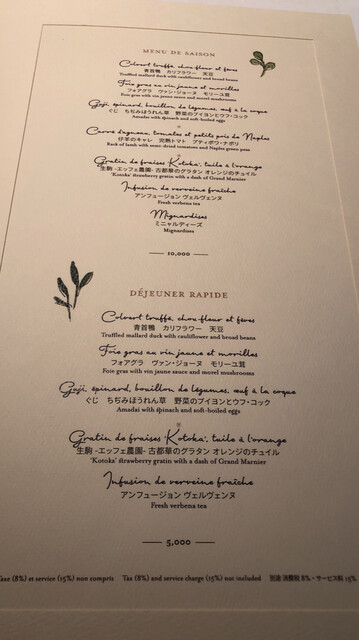 MENU DE SAISON
Colvert truffé, chou fleur et fèves
青首鴨　カリフラワー　天豆
Truffled mallard duck with cauliflower and broad beans
Foie gras au vin jaune et morilles
フォアグラ　ヴァン・ジョーヌ　モリーユ茸
Foie gras with vin jaune sauce and morel mushrooms
Guji, épinard, bouillon de légumes, œuf à la coque
ぐじ　ちぢみほうれん草　野菜のブイヨンとウフ・コック
Amadai with spinach and soft-boiled eggs
Carré d'agneau, tomates et petits pois de Naples
仔羊のキャレ　完熟トマト　プティポワ・ナポリ
Rack of lamb with semi-dried tomatoes and Naples green peas
Gratin de fraises 'Kotoka', tuile à l'orange
生駒 -エッフェ農園- 古都華のグラタン オレンジのチュイル
'Kotoka' strawberry gratin with a dash of Grand Marnier
Infusion de verveine fraîche
アンフュージョン ヴェルヴェンヌ
Fresh verbena tea
Mignardises
ミニャルディーズ
Mignardises
10,000
DÉJEUNER RAPIDE
Colvert truffé, chou fleur et fèves
青首鴨　カリフラワー　天豆
Truffled mallard duck with cauliflower and broad beans
Foie gras au vin jaune et morilles
フォアグラ　ヴァン・ジョーヌ　モリーユ茸
Foie gras with vin jaune sauce and morel mushrooms
Guji, épinard, bouillon de légumes, œuf à la coque
ぐじ　ちぢみほうれん草　野菜のブイヨンとウフ・コック
Amadai with spinach and soft-boiled eggs
Gratin de fraises 'Kotoka', tuile à l'orange
生駒 -エッフェ農園- 古都華のグラタン オレンジのチュイル
'Kotoka' strawberry gratin with a dash of Grand Marnier
Infusion de verveine fraîche
アンフュージョン ヴェルヴェンヌ
Fresh verbena tea
5,000
Taxe (8%) et service (15%) non compris　Tax (8%) and service charge (15%) not included　別途 消費税 8%・サービス料 15%